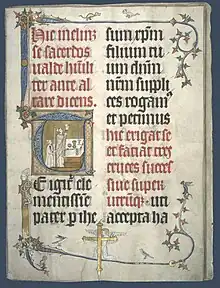 Hic inclinet
se sacerdos
ualde humili
ter ante al
tare dicens.
E igitur cle
mentissime
pater p ihe
sum xpm
filium tu
um dnm
nem suppli
ces rogam
et petimus
hic erigat se
et faciat tres
cruces succes
siue super
utrumq; uti
accepta ha